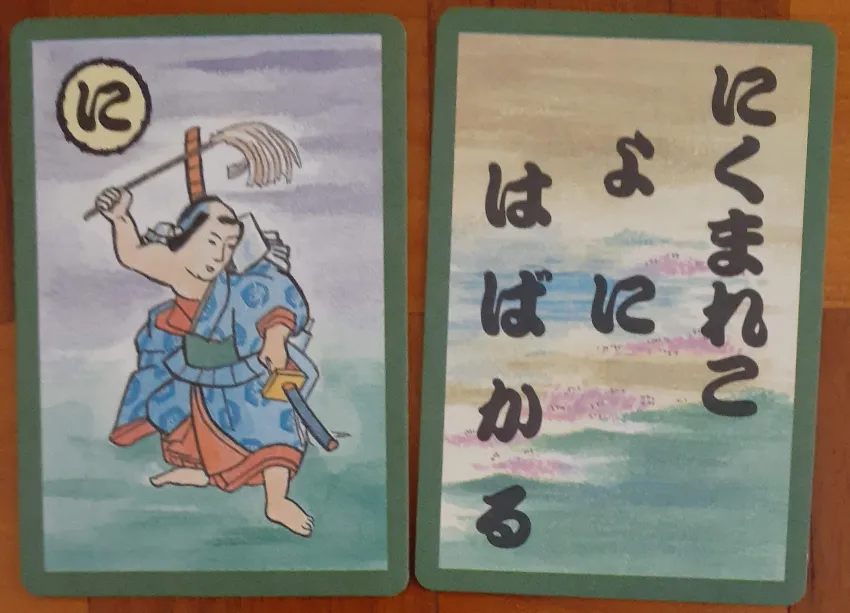 に
にくまれこ
よに
はばかる